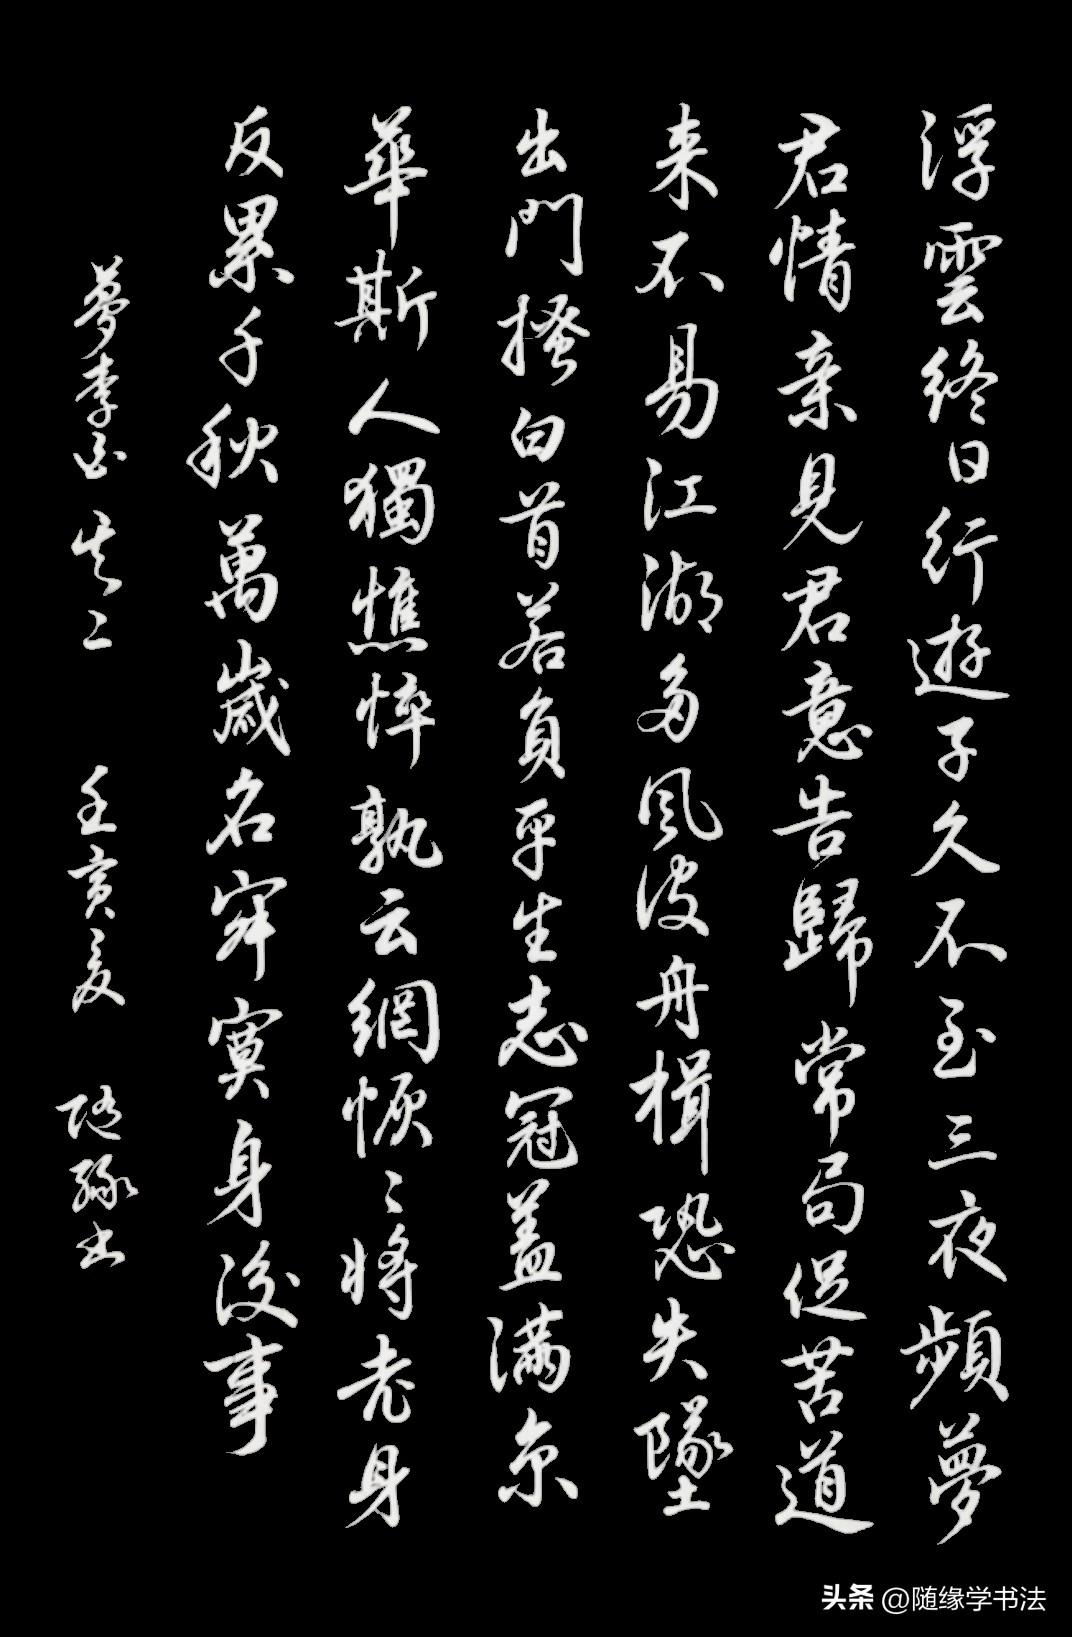 浮雲終日行遊子久不至三夜頻夢
君情亲見君意告歸常局促苦道
来不易江湖多風波舟楫恐失墜
出門搔白首若負平生志冠蓋滿京
華斯人獨憔悴孰云網恢〻將老身
反累千秋萬嵗名寂寞身後事
夢李白其二 壬寅夏 随緣书
头条 @随缘学书法